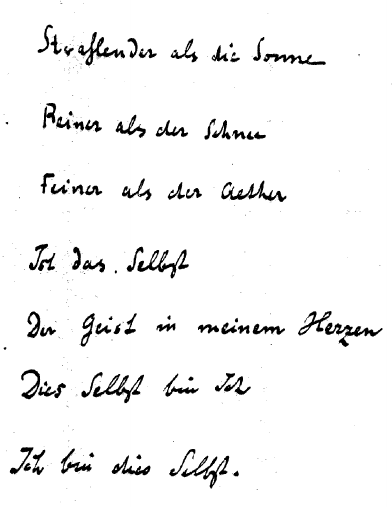 Strahlender als die Sonne
Reiner als der Schnee
Feiner als der Aether
Ist das Selbst
Der Geist in meinem Herzen
Dies Selbst bin Ich
Ich bin dies Selbst.